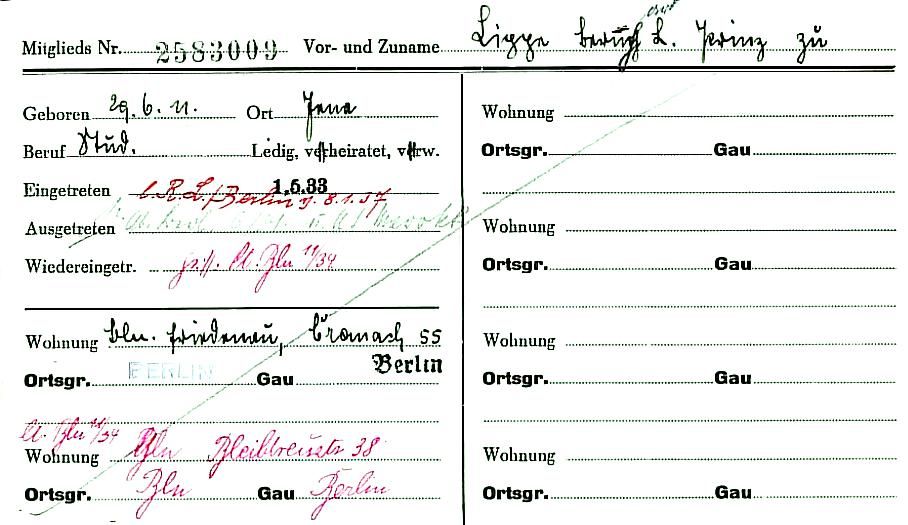 Mitglieds Nr. 2583009 Vor- und Zuname Lippe Prinz zu
Geboren 29.6.11. Ort Jena
Beruf Stud. Ledig, verheiratet, verw.
Eingetreten 1.5.33
l. R. L./Berlin v. 8.1.37
Ausgetreten
Wiedereingetr. lt. Bln 11/34
Wohnung Bln. Friedenau, 55
Ortsgr. BERLIN Gau Berlin
lt. Bln 11/34
Wohnung Bln Bleibtreustr 38
Ortsgr. Bln Gau Berlin
Wohnung
Ortsgr. Gau
Wohnung
Ortsgr. Gau
Wohnung
Ortsgr. Gau
Wohnung
Ortsgr. Gau